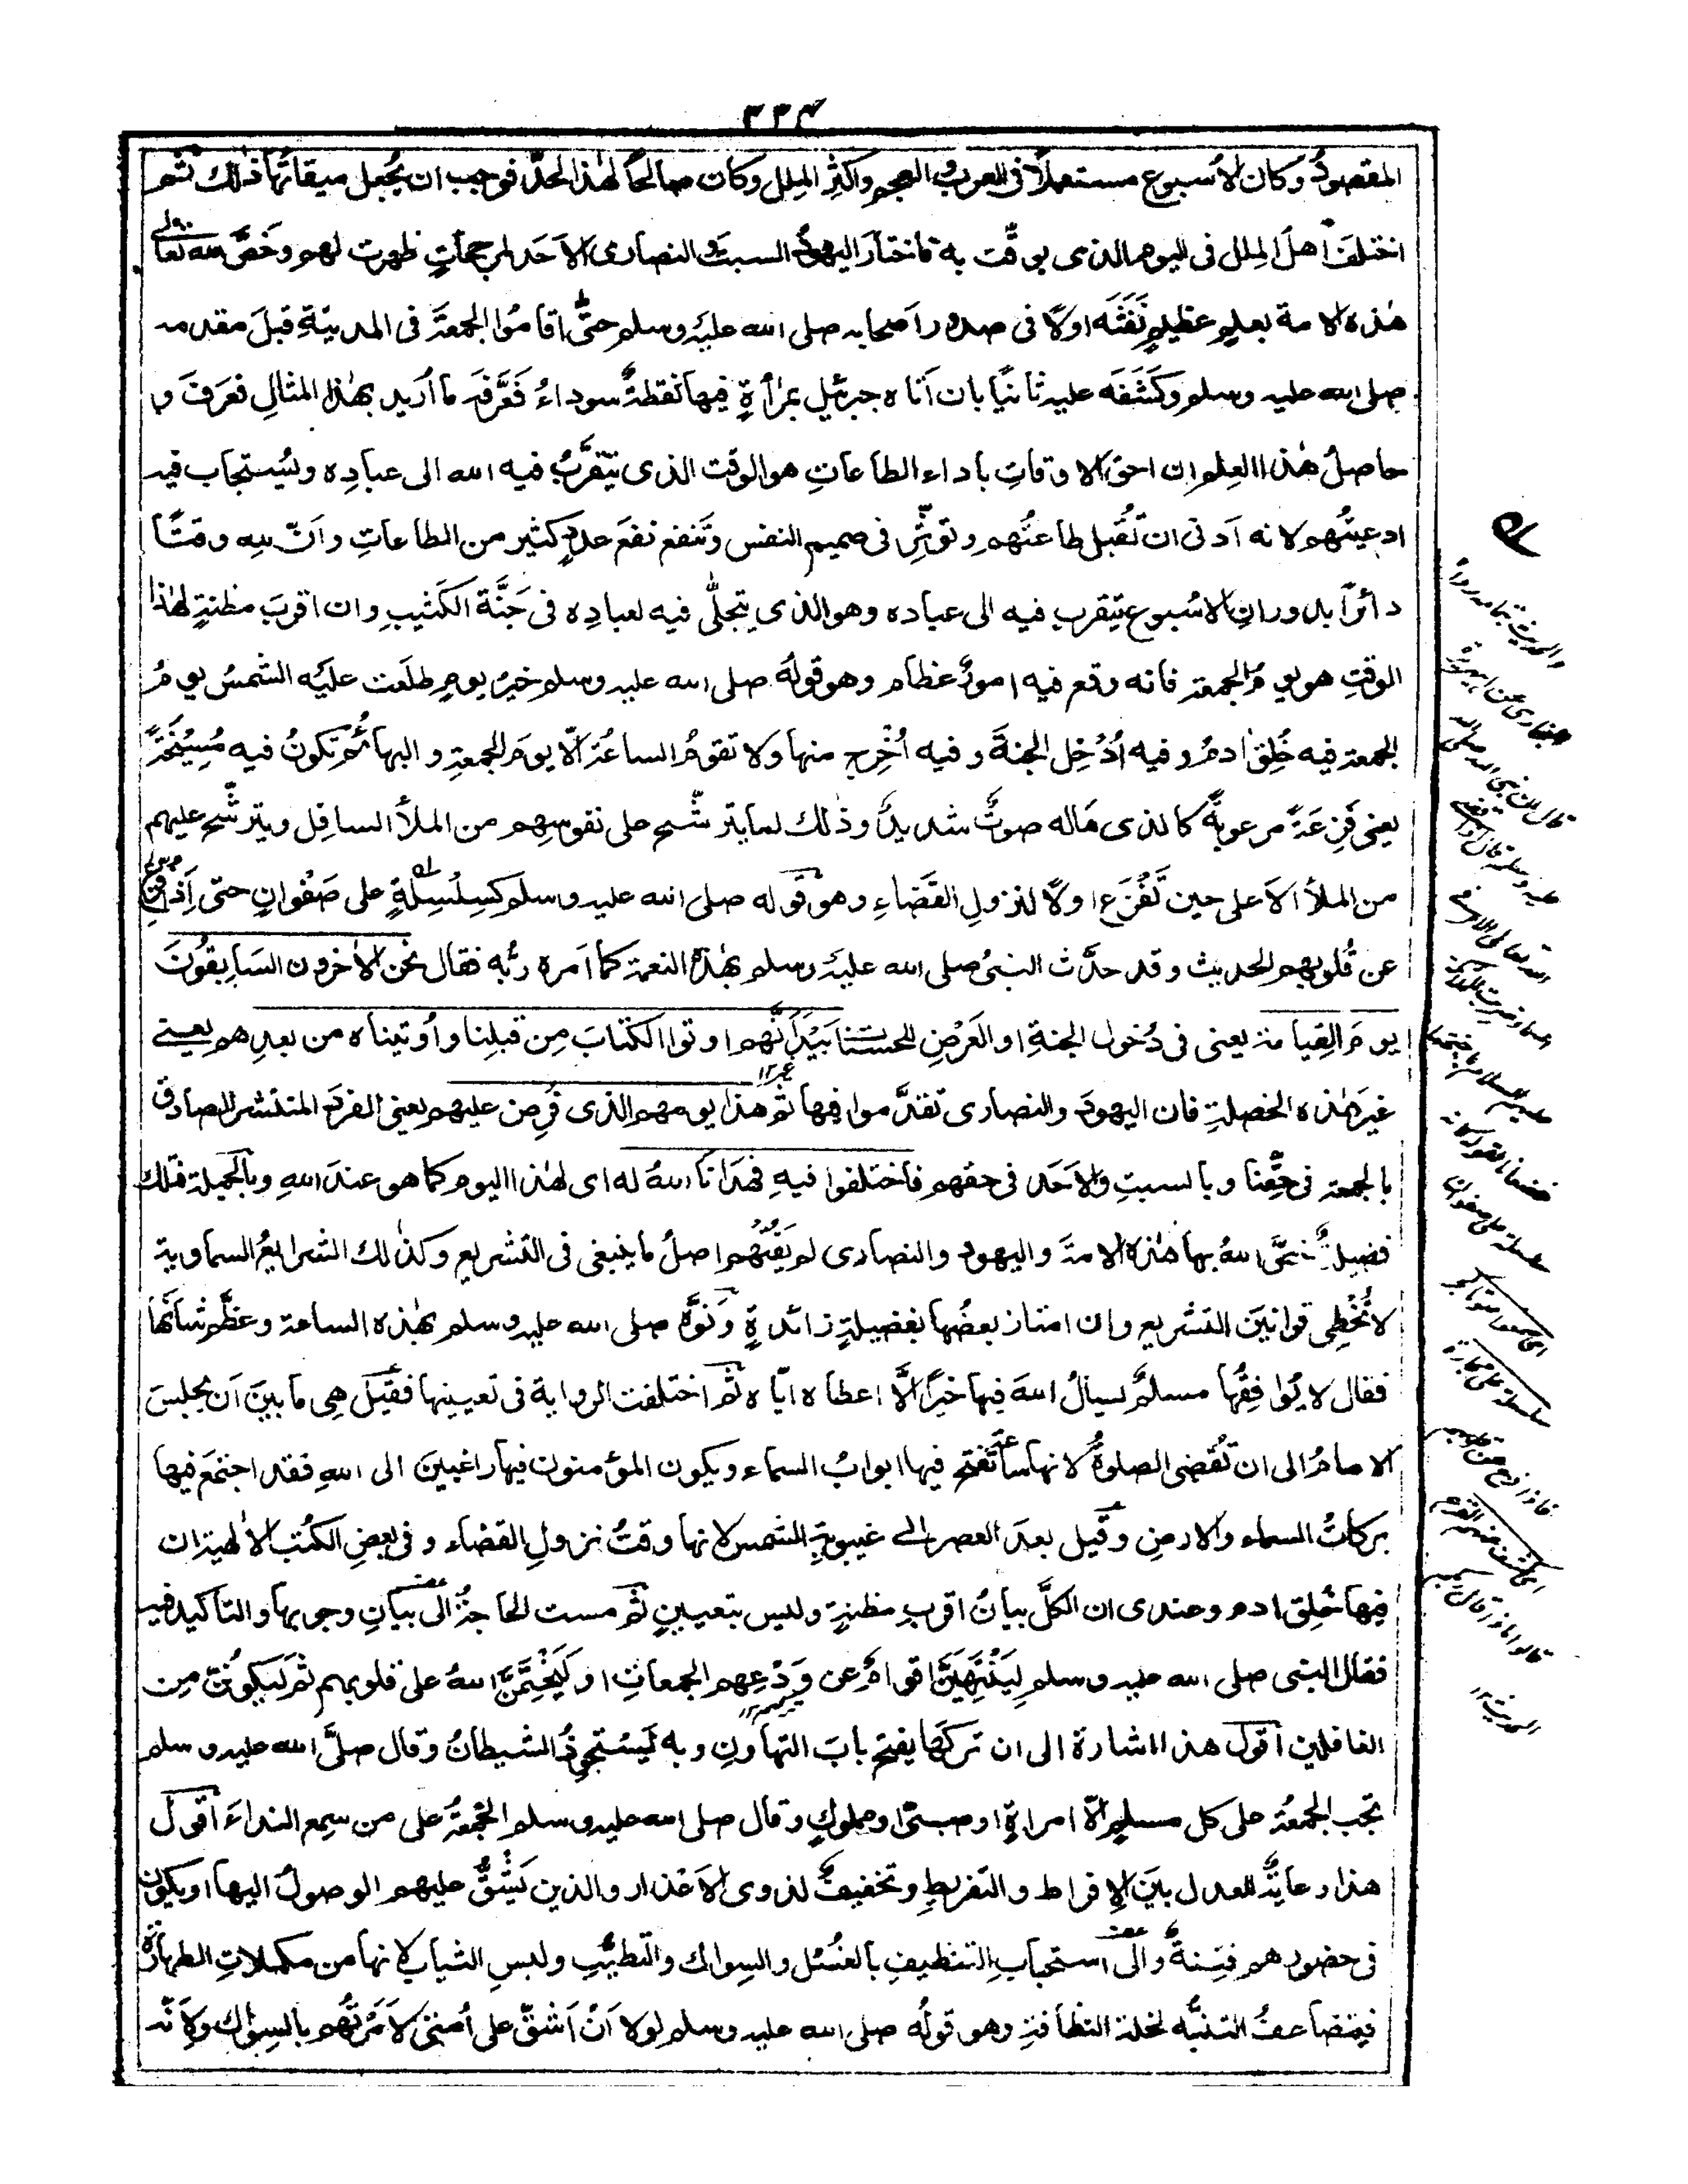 ٣٣٤
المقصودُ وكان الأسبوع مستعملًا فى العرب والعجم واكثرِ المِلل وكان صالحًا لهٰذا الحدّ فوجب ان يُجعل ميقاتُها ذٰلك ثم
اختلفَ أهل المِلل فى اليوم الذى يوقّت به فاختارَ اليهودُ السبتَ والنصارى الأحَد لمرجحاتٍ ظهرت لهم وخَصَّ الله تعالى
هٰذه الامة بعلمٍ عظيمٍ نَفَثَه اولًا فى صدور اصحابه صلى الله عليه وسلم حتّٰى اقامُوا الجمعةَ فى المدينةِ قبلَ مقدمه
صلى الله عليه وسلم وكَشَفَه عليه ثانيًا بان اتاه جبرئيل بمرأةٍ فيها نقطةٌ سوداءُ فَعَرَّفَه ما أُريد بهٰذا المثالِ فعَرَفَ و
حاصلُ هٰذا العِلم ان احق الاوقاتِ باداء الطاعاتِ هو الوقت الذى يتقرَّبُ فيه الله الى عبادِه ويُستجاب فيه
ادعيتُهم لانه ادنٰى ان تُقبل طاعتُهم وتؤثِّر فى صميم النفس وتنفع نفعَ عددٍ كثير من الطاعاتِ وانّ لله وقتًا
دائرًا بدورانِ الأسبوع يتقرب فيه الى عباده وهو الذى يتجلّٰى فيه لعبادِه فى جَنَّة الكَثيبِ وان اقربَ مظنةٍ لهٰذا
الوقتِ هو يومُ الجمعة فانه وقع فيه امورٌ عظام وهو قولُه صلى الله عليه وسلم خيرُ يومٍ طلَعت عليه الشمسُ يومُ
الجمعة فيه خُلِقَ ادمُ وفيه أُدْخِل الجنةَ وفيه أُخْرِج منها ولا تقومُ الساعةُ الّا يومَ الجمعةِ والبهائمُ تكونُ فيه مُسِيْخَةً
يعنى فَزِعَةً مرعوبةً كالذى هَاله صوتٌ شديدٌ وذٰلك لما يترشّح على نفوسِهم من الملأ السافِل ويترشّح عليهم
من الملأ الأعلى حين تَفْزَع اولًا لنزولِ القَضاءِ وهو قوله صلى الله عليه وسلم كسِلْسِلَةٍ على صَفْوانٍ حتى اذا فُزِّعَ
عن قُلوبهم الحديث وقد حدَّث النبىُّ صلى الله عليه وسلم بهٰذه النعمة كما امره ربُّه فقال نحن الأخرون السَابِقُوْنَ
يومَ القيامة يعنى فى دُخول الجنةِ او العَرْضِ للحسَاب بَيْدَ انَّهم اوتوا الكتابَ مِن قبلِنا وأوتيناه من بعدِهم يعنى
غيرَ هٰذه الخصلةِ فان اليهودَ والنصارى تقدَّموا فيها ثم هذا يومهم الذى فُرِضَ عليهم يعنى الفردَ المنتشرَ الصادق
بالجمعة فى حقِّنا وبالسبتِ والاحَد فى حقهم فاختلفوا فيهِ فهَدَانَا اللهُ له اى لهٰذا اليوم كما هو عندَ اللهِ وبالجملة فتلك
فضيلةٌ خصَّ اللهُ بها هٰذه الامةَ واليهودُ والنصارى لم يَفُتْهم اصلُ ما ينبغى فى التشريع وكذٰلك الشرائعُ السماوية
لا تُخْطِى قوانينَ التشريع وان امتاز بعضُها بفضيلةٍ زائدةٍ ونَوَّهَ صلى الله عليه وسلم بهٰذه الساعة وعظَّم شأنَها
فقال لا يُوافِقُها مسلمٌ يسألُ اللهَ فيها خيرًا الّا اعطاه ايّاه ثم اختلفت الرواية فى تعيينها فقيلَ هِى ما بينَ ان يجلسَ
الامامُ الى ان تُقضى الصلوةُ لانها ساعةٌ تُفتح فيها ابوابُ السماء ويكون المؤمنون فيها راغبينَ الى اللهِ فقد اجتمَع فيها
بركاتُ السماء والارضِ وقيل بعدَ العصر الٰى غيبوبةِ الشمس لانها وقتُ نزولِ القضاء وفى بعضِ الكتب الالٰهية ان
فيها خُلِقَ ادم وعندى ان الكلَّ بيانُ اقربِ مظنةٍ وليس بتعيينٍ ثم مست الحاجةُ الى بيانِ وجوبها والتاكيد فيه
فقال النبى صلى الله عليه وسلم لِيَنْتَهِيَنَّ اقوامٌ عن وَدْعِهم الجمعاتِ او لَيَخْتِمَنَّ اللهُ على قلوبهم ثم لَيَكُونُنَّ مِن
الغافلين اقول هذا اشارة الى ان تركَها يفتح بابَ التهاونِ وبه يَسْتحوِذُ الشيطانُ وقال صلَّى الله عليه وسلم
تجب الجمعةُ على كل مسلمٍ الّا امراةٍ او صبىٍّ او مملوكٍ وقال صلى الله عليه وسلم الجُمُعةُ على من سمِع النداءَ اقول
هذا رعايةٌ للعدل بينَ الإفراط والتفريطِ وتخفيفٌ لذوى الأعْذار والذين يَشُقُّ عليهم الوصولُ اليها او يكون
فى حضورهم فتنةٌ والى استحبابِ التنظيفِ بالغُسْل والسِواك والتطيُّبِ ولبسِ الثيابِ لانها من مكملاتِ الطهارة
فيتضاعفُ التنبُّه لخلة النظافةِ وهو قولُه صلى الله عليه وسلم لولا ان اشُقّ على أُمتى لأمَرتُهم بالسِواك ولأنّه